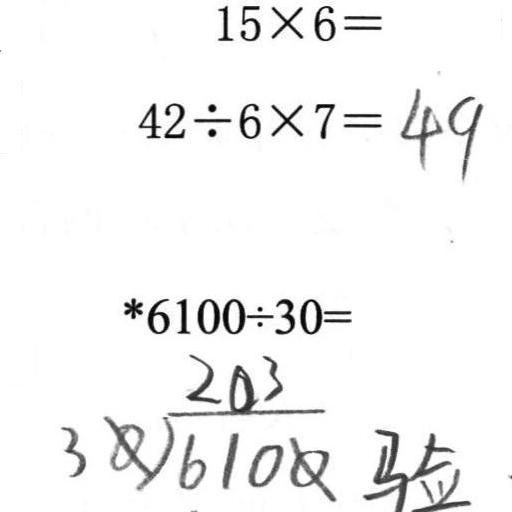 15×6=
42÷6×7=49
*6100÷30=
203
30)6100 验